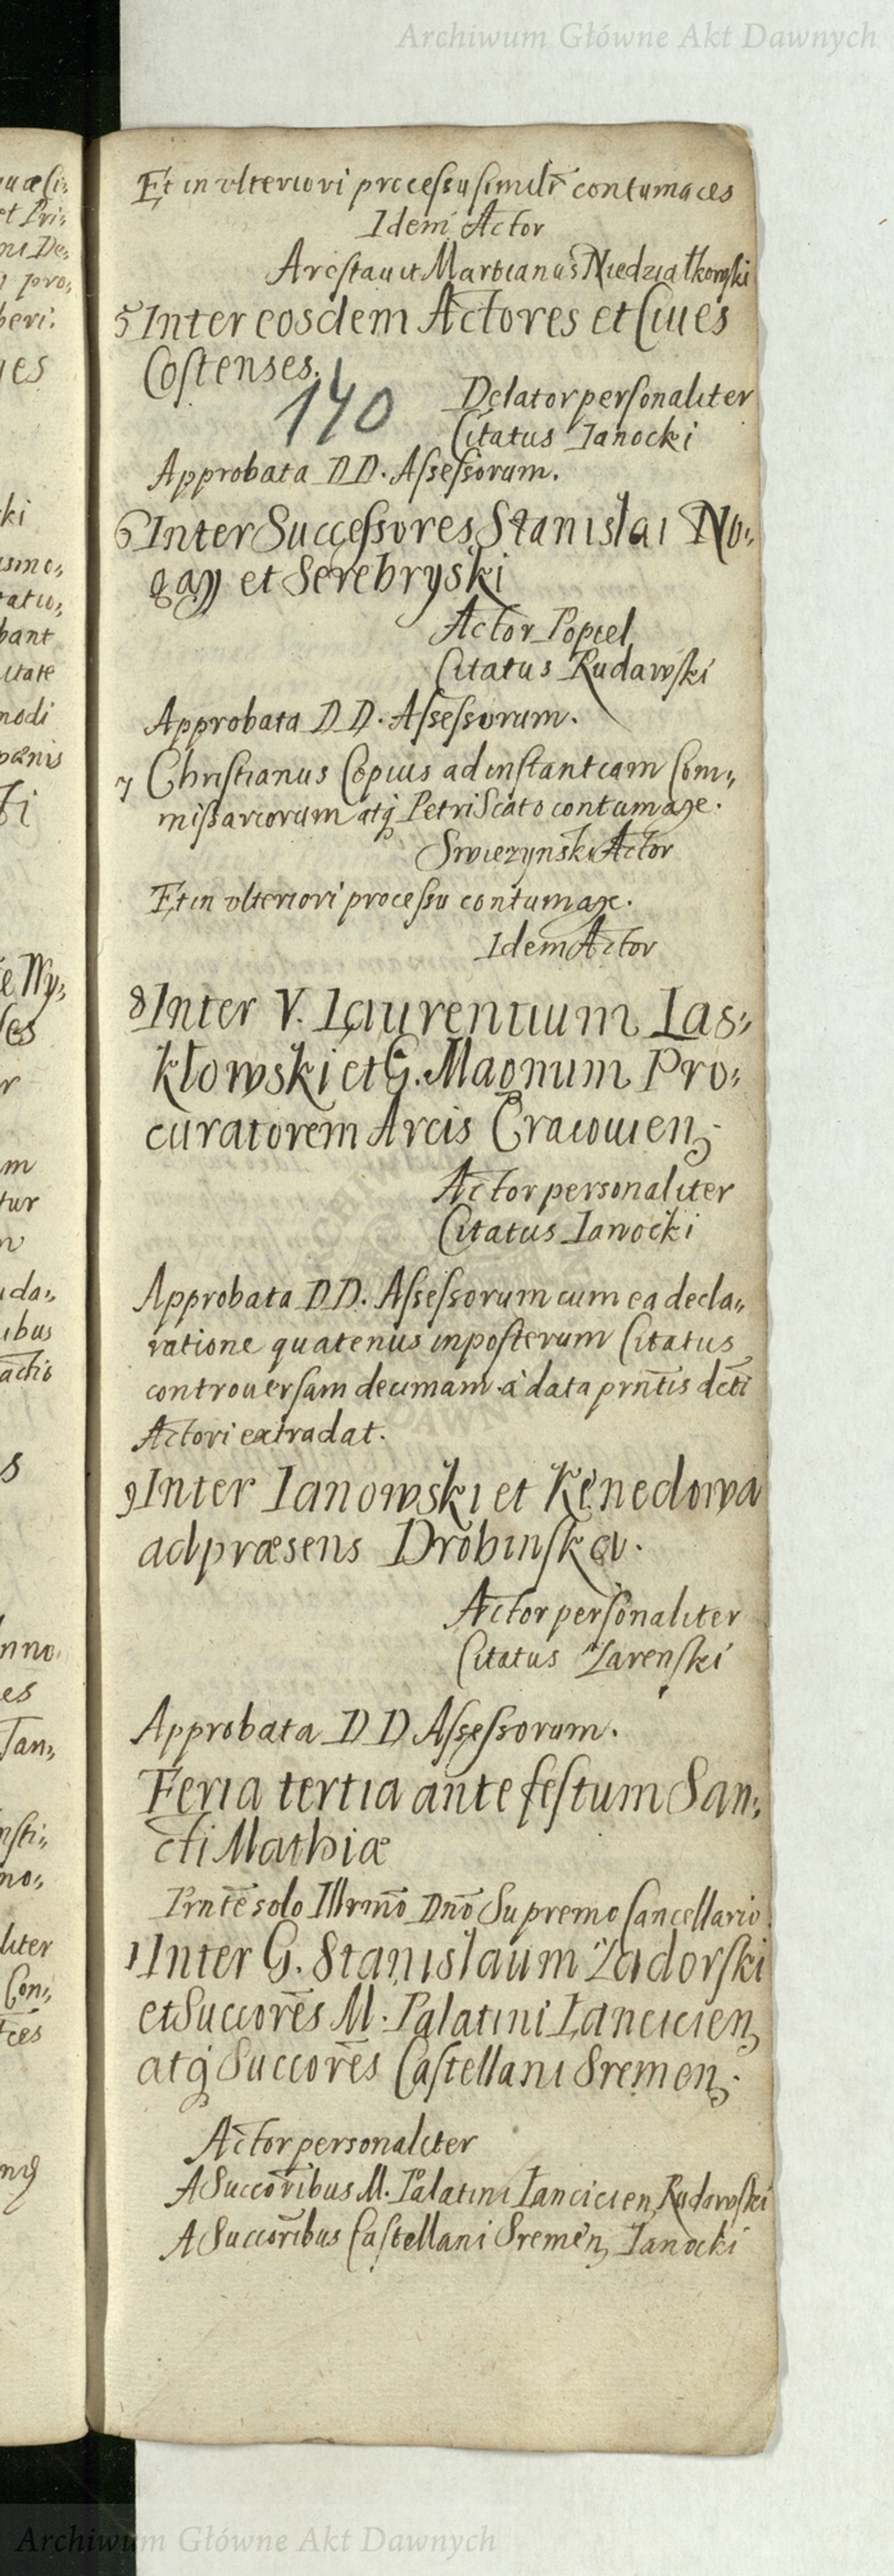 Archiwum Główne Akt Dawnych
Et in ulteriori processu similr̃ contumaces
Idem Actor
Arestauit Martianus Niedziałkowski
5 Inter eosdem Actores et Ciues
Costenses.
140
Delator personaliter
Citatus Janocki
Approbata DD. Assessorum.
6 Inter Successores Stanislai No,,
gay et Serebryski
Actor Popiel
Citatus Rudawski
Approbata DD. Assessorum.
7 Christianus Copius ad instantiam Com,,
missariorum atq Petri Scato contumax.
Swiezynski Actor
Et in ulteriori processu contumax.
Idem Actor
8 Inter V. Laurentium Las,,
kłowski et G. Magnum Pro,,
curatorem Arcis Cracouien.
Actor personaliter
Citatus Janocki
Approbata DD. Assessorum cum ea decla,,
ratione quatenus inposterum Citatus
controuersam decimam à data prñtis dcti
Actori extradat.
9 Inter Janowski et Kenedowa
ad præsens Drobinska.
Actor personaliter
Citatus Zarenski
Approbata DD Assessorum.
Feria tertia ante festum San,,
cti Mathiæ
Prñte solo Illrmõ Dnõ Supremo Cancellario
1 Inter G. Stanislaum Zadorski
et Succorẽs M. Palatini Lancicien
atq Succorẽs Castellani Sremen.
Actor personaliter
A Succorĩbus M. Palatini Lancicien Rudawski
A Succorĩbus Castellani Sremen Janocki
Archiwum Główne Akt Dawnych